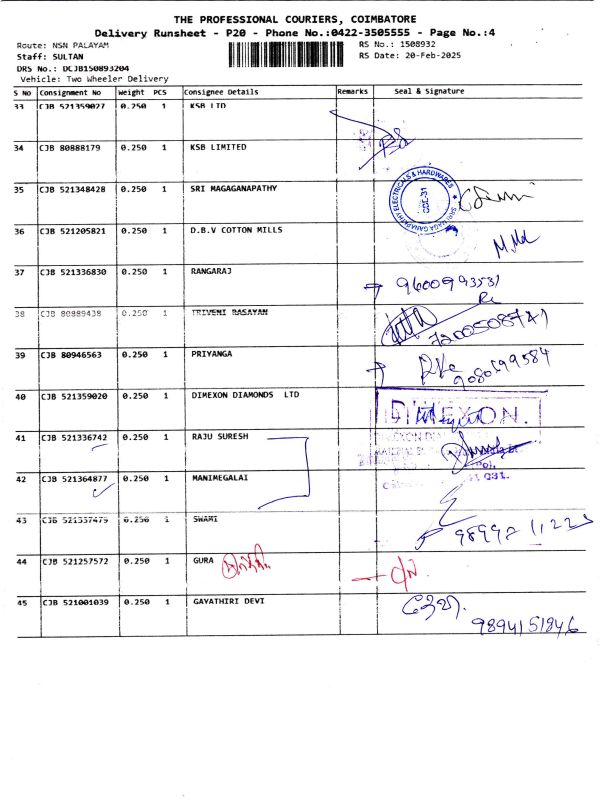 THE PROFESSIONAL COURIERS, COIMBATORE
Delivery Runsheet - P20 - Phone No.:0422-3505555 - Page No.:4
Route: NSN PALAYAM RS No.: 1508932
Staff: SULTAN RS Date: 20-Feb-2025
DRS No.: DCJB150893204
Vehicle: Two Wheeler Delivery
S No Consignment No Weight PCS Consignee Details Remarks Seal & Signature
33 CJB 521359027 0.250 1 KSB LTD
34 CJB 80888179 0.250 1 KSB LIMITED
35 CJB 521348428 0.250 1 SRI MAGAGANAPATHY
SRI MAGA GANAPATHY ELECTRICALS & HARDWARES
CBE-31
36 CJB 521205821 0.250 1 D.B.V COTTON MILLS
37 CJB 521336830 0.250 1 RANGARAJ
9600993531
38 CJB 80889438 0.250 1 TRIVENI RASAYAN
7200508741
39 CJB 80946563 0.250 1 PRIYANGA
9080199584
40 CJB 521359020 0.250 1 DIMEXON DIAMONDS LTD
DIMEXON.
41 CJB 521336742 0.250 1 RAJU SURESH
42 CJB 521364877 0.250 1 MANIMEGALAI
43 CJB 521337479 0.250 1 SWAMI
44 CJB 521257572 0.250 1 GURA
45 CJB 521001039 0.250 1 GAYATHIRI DEVI
9894151846